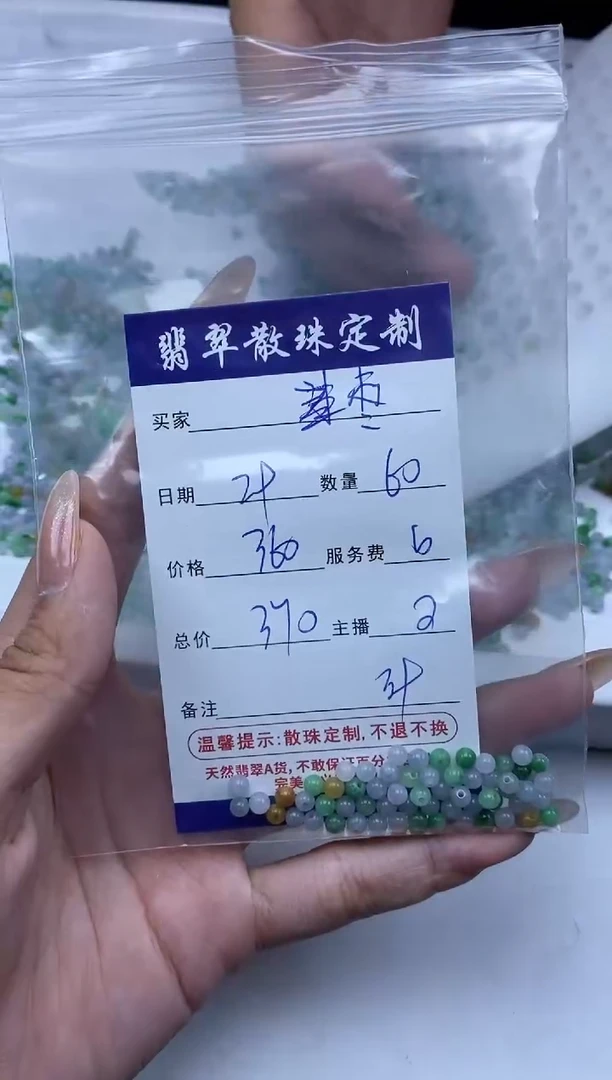 翡翠散珠定制
买家 枣
日期 数量 60
价格 360 服务费 6
总价 370 主播 2
备注
温馨提示:散珠定制,不退不换
天然翡翠A货,不敢保证百分
完美